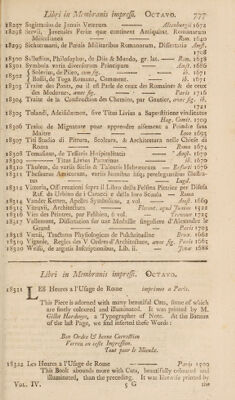 Libri in Membranis impressi. OCTAVO. 777
18297 Sagittarius de Januis Veterum — Altenburgi 1672
18298 Servii, Juvenalis Feriæ quæ continent Antiquitat. Romanarum
Miscellanea — Rom. 1640
18299 Sichtermanni, de Pœnis Militaribus Romanorum, Dissertatio Amst.
1708
18300 Sallustius, Philosophus, de Diis & Mundo, gr. lat. — Rom. 1638
18301 Symbola varia diversorum Principum — Amst. 1686
18302 Solerius, de Pileo, cum fig. — ib. 1671
Bossii, de Toga Romana, Comment. — ib. 1671
18303 Traite des Ponts, ou il est Parle de ceux des Romains & de ceux
des Modernes, avec fig. — Paris 1716
18304 Traite de la Construction des Chemins, par Gautier, avec fig. ib.
1721
18305 Tolandi, Adeisidæmon, sive Titus Livius a Superstitione vindicatus
Hag. Comit. 1709
18306 Traite de Mignature pour apprendre aisement a Peindre sans
Maitre — Lion 1693
18307 Titi Studio di Pittura, Scoltura, & Architettura nelle Chiese di
Roma — Roma 1674
18308 Tomasinus, de Tesseris Hospitalitatis — Amst. 1670
18309 — Titus Livius Patavinus — ib. 1670
18310 Thulem, de variis Siclis & Talentis Hebræorum — 1676
18311 Theatrum, Americanum, variis hominum
Lugd.
18312 Vittoria, Osservazioni sopra il Libro della Felsina Pittrice per Difesa
Raf. da Urbino de i Caracci e della loro Scuola — Roma
18314 Vander Ketten, Apelles Symbolicus, 2 vol — Amst. 1699
18315 Vitruvii, Architectura — Florent. apud Juntam 1522
18316 Vies des Peintres, par Felibien, 6 vol. — Trevoux 1725
18317 Vallemont, Dissertation sur une Medaille singuliere d'Alexandre le
Grand — Paris 1703
18318 Vannii, Tractatus Physiologicus de Pulchritudine — Brux. 1662
18319 Vignole, Regles des V Ordres d'Architecture, avec fig. Paris
18320 Weisii, de argutis Inscriptionibus, Lib. ii. — Jenæ 1688
Libri in Membranis impressi. OCTAVO.
18321 LES Heures a l'Usage de Rome — imprimee a Paris.
This Piece is adorned with many beautiful Cuts, some of which
are finely coloured and illuminated. It was printed by M.
Gillet Hardouyn, a Typographer of Note. At the Bottom
of the last Page, we find inserted these Words:
Bon Ordre & bonne Correction
Verrez en ceste Impression.
Tout pour le Mieulx.
18322 Les Heures a l'Usage de Rome — Paris 1509
This Book abounds more with Cuts, beautifully coloured and
illuminated, than the preceding. It was likewise printed by
VOL. IV. 5 G the